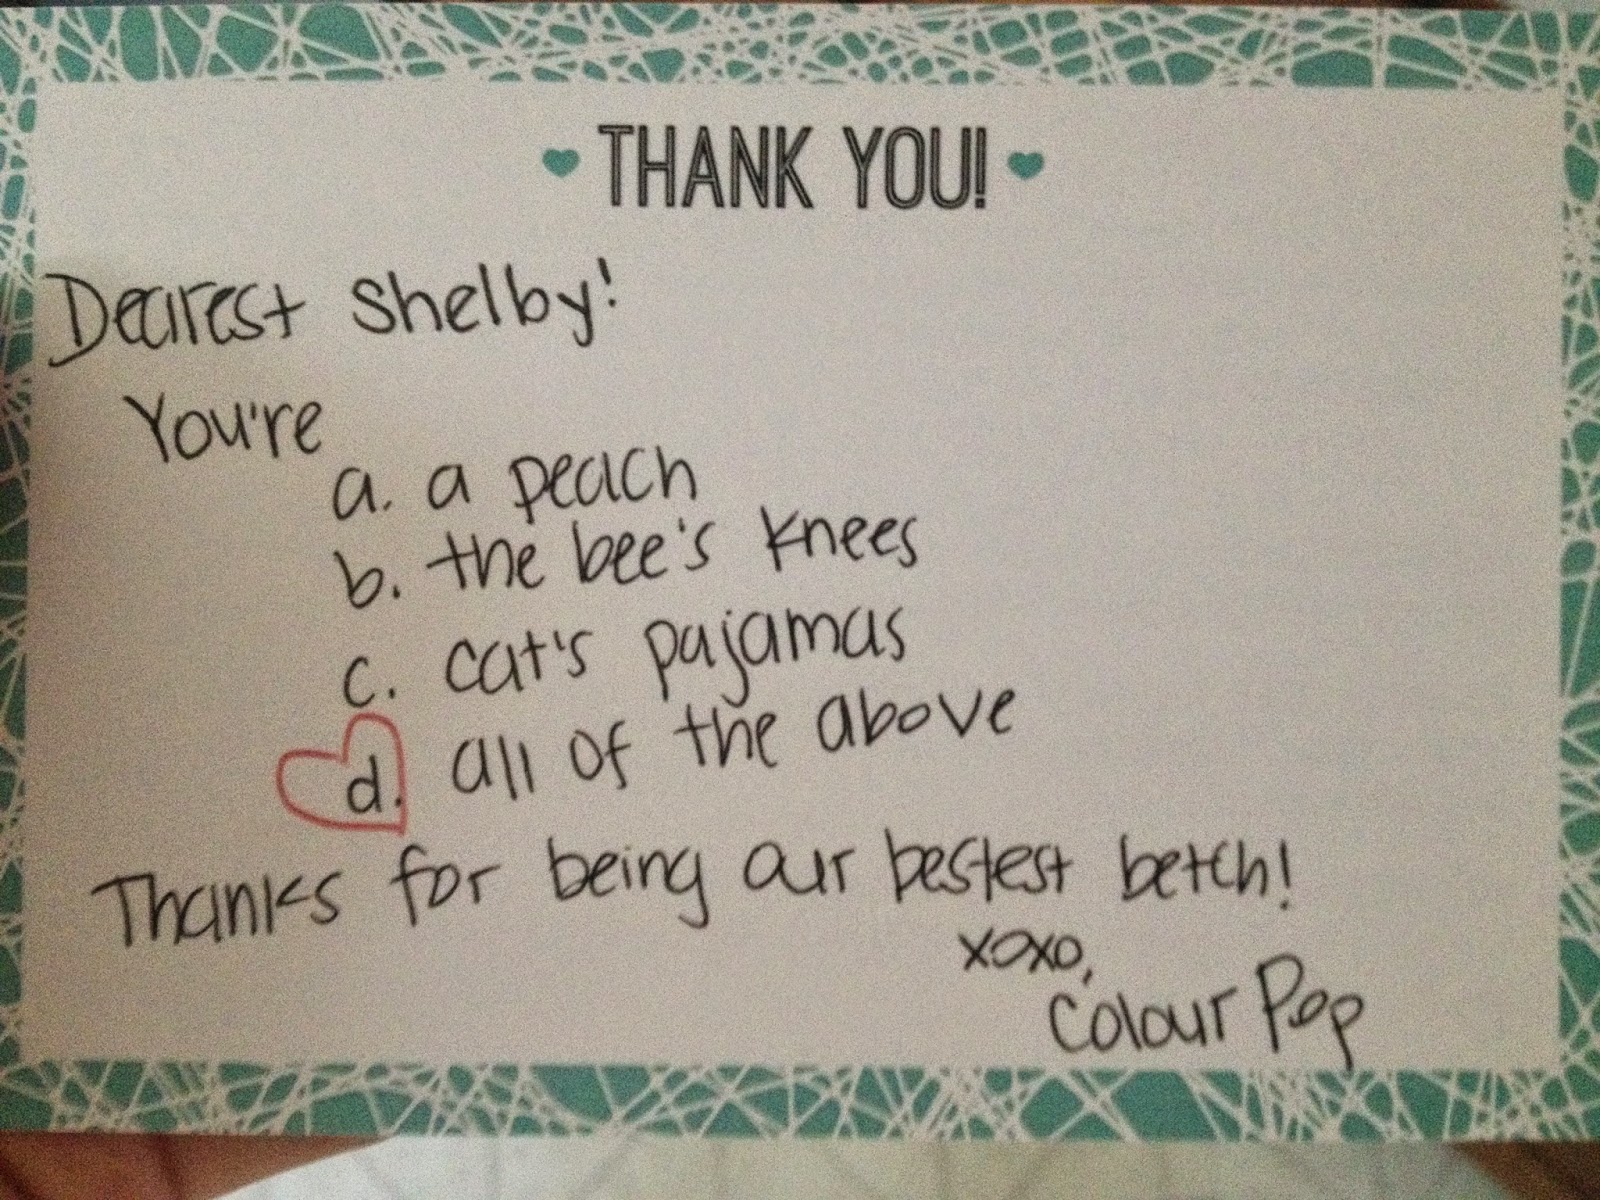 THANK YOU!
Dearest Shelby!
You're
a. a peach
b. the bee's knees
c. cat's pajamas
d. all of the above
Thanks for being our bestest betch!
xoxo,
Colour Pop